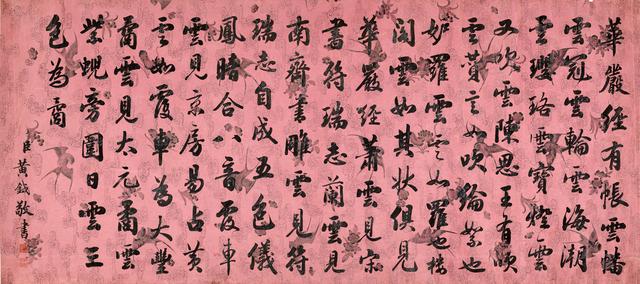 華嚴經有帳雲幡
雲冠雲輪雲海潮
雲瓔珞雲寶燈雲
又吹雲陳思王有頌
雲贊言如吹綸絮也
如羅雲言如羅也樓
閣雲如其狀俱見
華嚴經蕭雲見宋
書符瑞志蘭雲見
南齊書雕雲見符
瑞志自成五色儀
鳳晴合八音霞車
雲見京房易占黃
雲如霞車為大豐
矞雲見太元矞雲
紫蜺旁圍日雲三
色為矞
臣黃鉞敬書